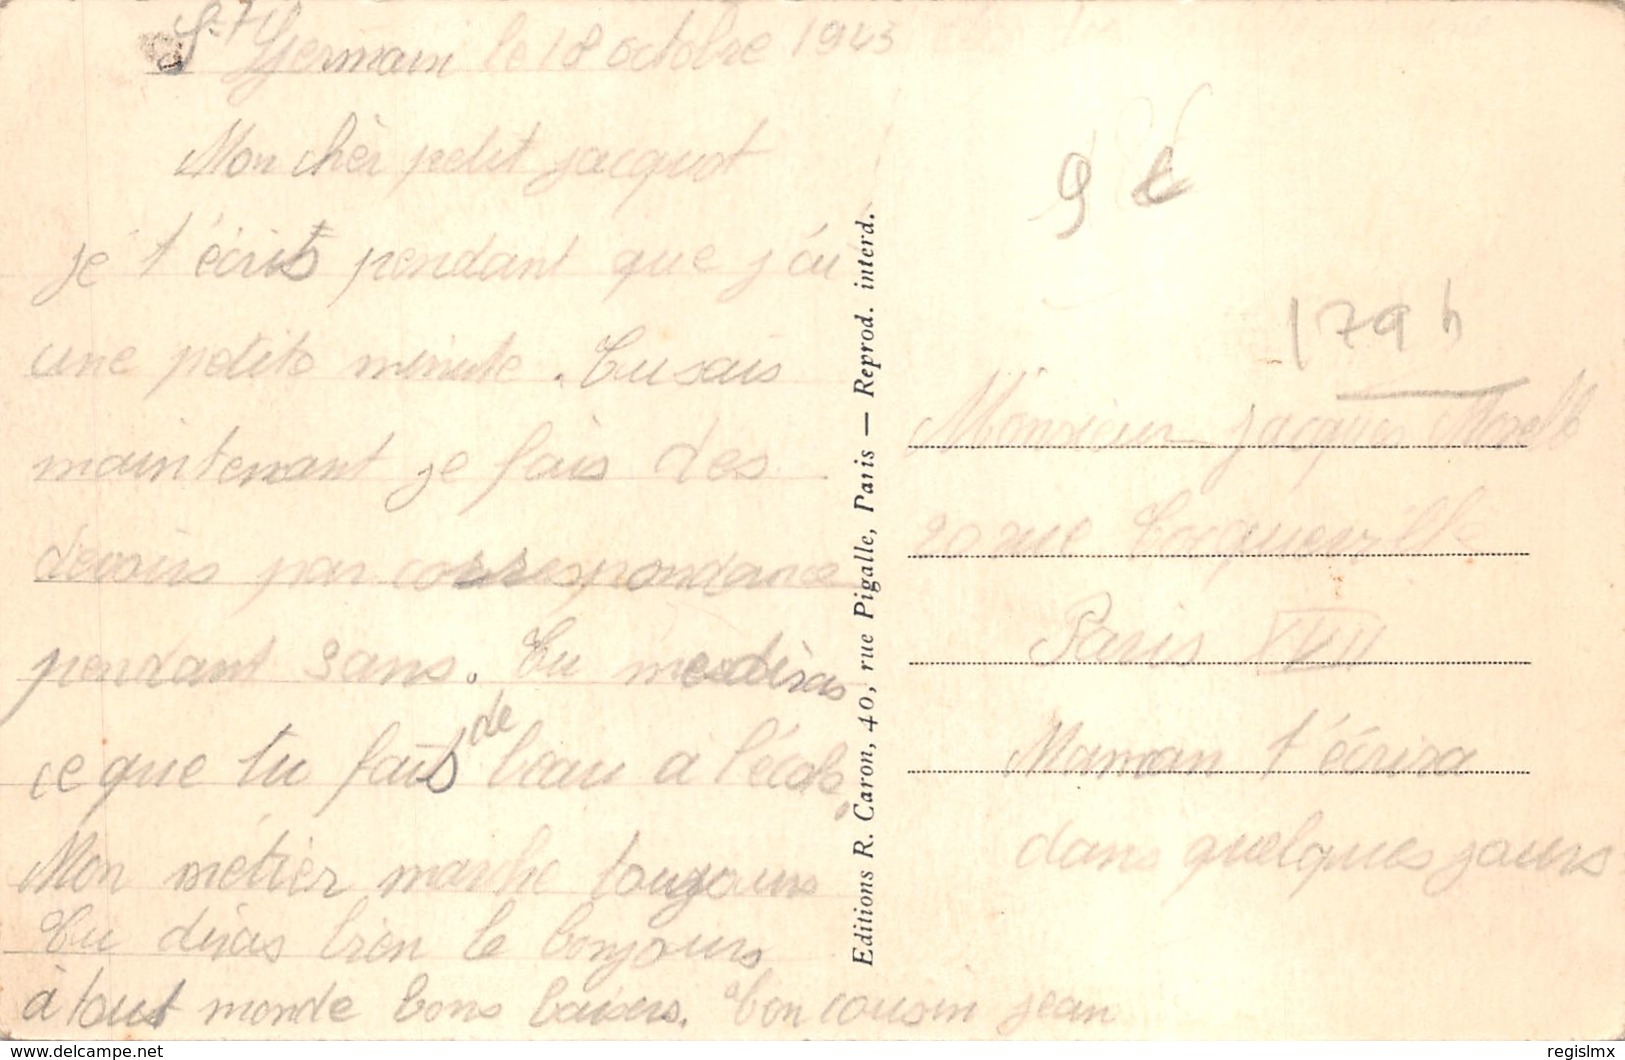 St Germain le 18 octobre 1943
Mon chèr petit jacquot
je t'écrits pendant que j'ai
une petite minute. Tu sais
maintenant je fais des
devoirs par correspondance
pendant 3 ans. Tu me diras
ce que tu fais de beau a l'école.
Mon métier marche toujours
Tu diras bien le bonjours
à tout monde bons baisers. Ton cousin jean
Editions R. Caron, 40, rue Pigalle, Paris — Reprod. interd.
9 €
179 h
Monsieur jacques
20 rue Tocqueville
Paris XVII
Maman t'écrira
dans quelques jours
www.delcampe.net
regislmx